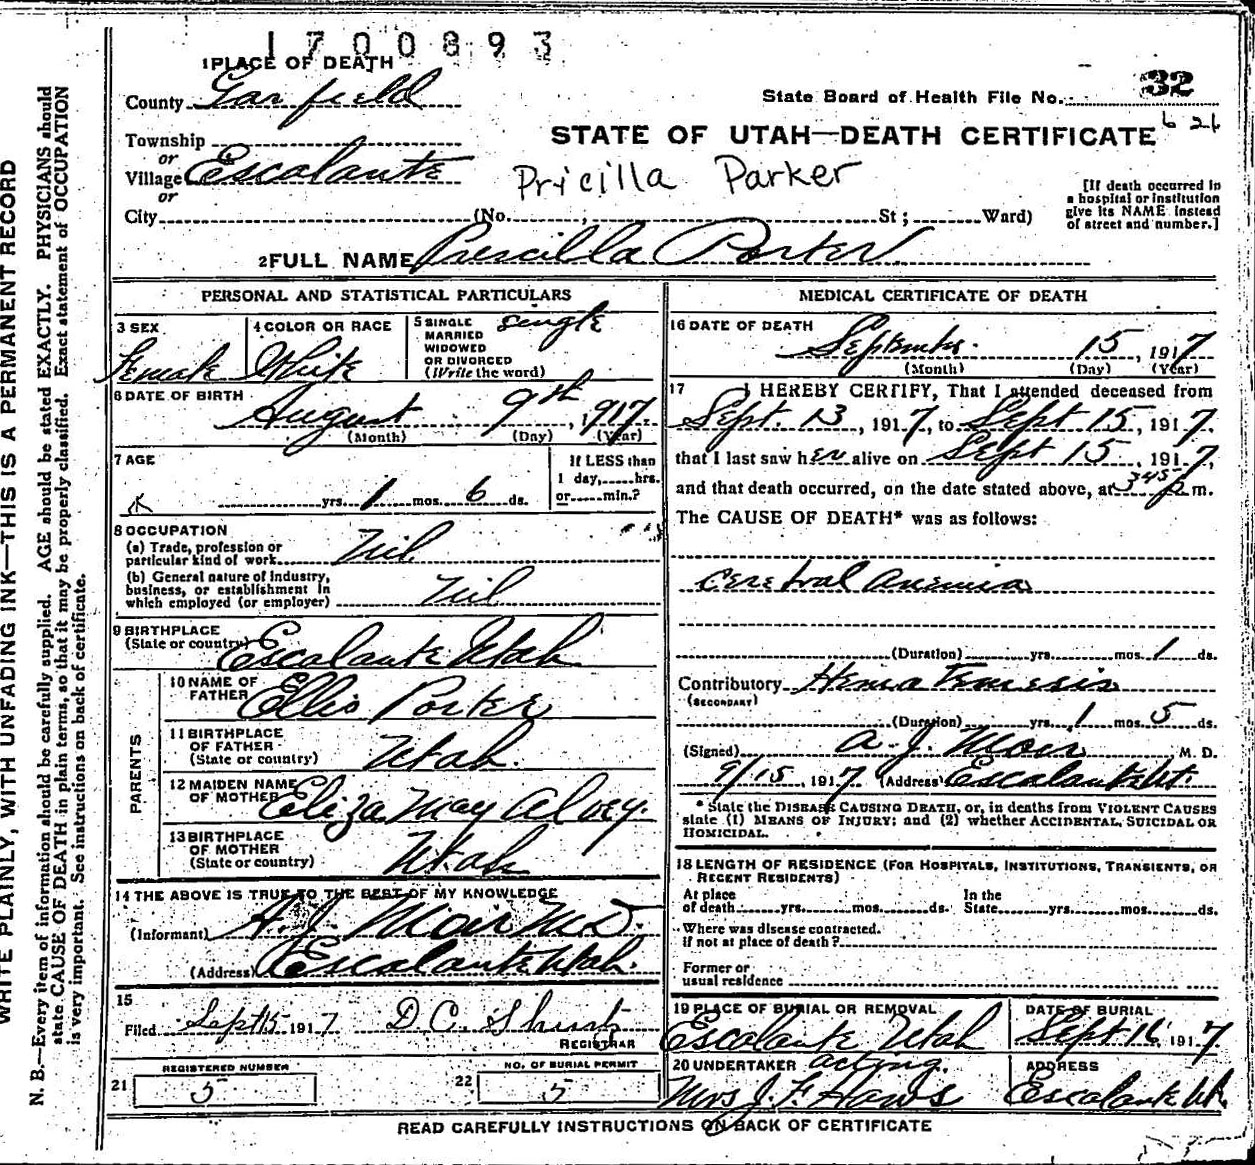 1700893
1 PLACE OF DEATH
County Garfield
State Board of Health File No. 32
Township
or
Village Escalante
or
STATE OF UTAH—DEATH CERTIFICATE 6 26
Pricilla Parker
City (No. , St ; Ward)
[If death occurred in
a hospital or institution
give its NAME instead
of street and number.]
2 FULL NAME Prescilla Porter
PERSONAL AND STATISTICAL PARTICULARS
3 SEX
Female
4 COLOR OR RACE
White
5 SINGLE
MARRIED
WIDOWED
OR DIVORCED
(Write the word)
single
6 DATE OF BIRTH
August 9th, 1917.
(Month) (Day) (Year)
7 AGE
yrs. 1 mos. 6 ds.
If LESS than
1 day, hrs.
or min.?
8 OCCUPATION
(a) Trade, profession or
particular kind of work Nil
(b) General nature of industry,
business, or establishment in
which employed (or employer) Nil
9 BIRTHPLACE
(State or country) Escalante Utah
PARENTS
10 NAME OF
FATHER Ellis Porter
11 BIRTHPLACE
OF FATHER
(State or country) Utah.
12 MAIDEN NAME
OF MOTHER Eliza May Alvey.
13 BIRTHPLACE
OF MOTHER
(State or country) Utah
14 THE ABOVE IS TRUE TO THE BEST OF MY KNOWLEDGE
(Informant) A. J. Moir M.D.
(Address) Escalante Utah.
15
Filed Sept 15 1917 D. C. Shurtz
REGISTRAR
21 REGISTERED NUMBER
5
22 NO. OF BURIAL PERMIT
5
MEDICAL CERTIFICATE OF DEATH
16 DATE OF DEATH
September 15, 1917
(Month) (Day) (Year)
17 I HEREBY CERTIFY, That I attended deceased from
Sept. 13, 1917, to Sept 15, 1917,
that I last saw her alive on Sept 15, 1917,
and that death occurred, on the date stated above, at 3.45 p m.
The CAUSE OF DEATH* was as follows:
Cerebral Anemia
(Duration) yrs. mos. 1 ds.
Contributory Hema Temesis
(SECONDARY)
(Duration) yrs. 1 mos. 5 ds.
(Signed) A. J. Moir M. D.
9/15, 1917 (Address) Escalante Ut.
* State the DISEASE CAUSING DEATH, or, in deaths from VIOLENT CAUSES
state (1) MEANS OF INJURY; and (2) whether ACCIDENTAL, SUICIDAL OR
HOMICIDAL.
18 LENGTH OF RESIDENCE (FOR HOSPITALS, INSTITUTIONS, TRANSIENTS, OR
RECENT RESIDENTS)
At place
of death yrs. mos. ds.
In the
State yrs. mos. ds.
Where was disease contracted.
if not at place of death?
Former or
usual residence
19 PLACE OF BURIAL OR REMOVAL
Escalante Utah
DATE OF BURIAL
Sept 16 1917
20 UNDERTAKER acting.
Mrs J. F. Haws
ADDRESS
Escalante Ut.
READ CAREFULLY INSTRUCTIONS ON BACK OF CERTIFICATE
WRITE PLAINLY, WITH UNFADING INK—THIS IS A PERMANENT RECORD
N. B.—Every item of information should be carefully supplied. AGE should be stated EXACTLY. PHYSICIANS should
state CAUSE OF DEATH in plain terms, so that it may be properly classified. Exact statement of OCCUPATION
is very important. See instructions on back of certificate.